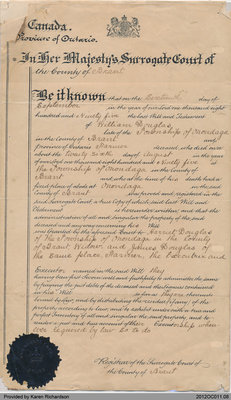 Canada.
Province of Ontario.
In Her Majesty's Surrogate Court of
the County of Brant
Be it known that on the day of
September in the year of our Lord one thousand eight
hundred and Ninety five the last Will and Testament
of William Douglas
late of the Township of Onondaga
in the County of Brant and
province of Ontario Farmer deceased, who died on or
about the Twenty Sixth day of August in the year
of our Lord one thousand eight hundred and Ninety five
the Township of Onondaga in the County of
Brant and who at the time of his death had a
fixed place of abode at Onondaga
in the said
County of Brant was proved and registered in the
said Surrogate Court a true Copy of which said last Will and
Testament is hereunder written and that the
administration of all and singular the property of the said
deceased and any way concerning his Will
was Granted by the aforesaid Court to Harriet Douglas
of the Township of Onondaga in the County
of Brant Widow and James Douglas of
the same place Farmer, the Executrix and
Executor named in the said Will they
having been first sworn well and faithfully to administer the same
by paying the just debts of the deceased and the legacies contained
in his Will so far as they are thereunto
bound by law, and by distributing the residue (if any) of the
property according to law, and to exhibit under oath a true and
perfect Inventory of all and singular the said property, and to
render a just and true account of their Executorship when
required by law so to do
Registrar of the Surrogate Court of
the County of Brant
Provided by Karen Richardson
2012OC011.08